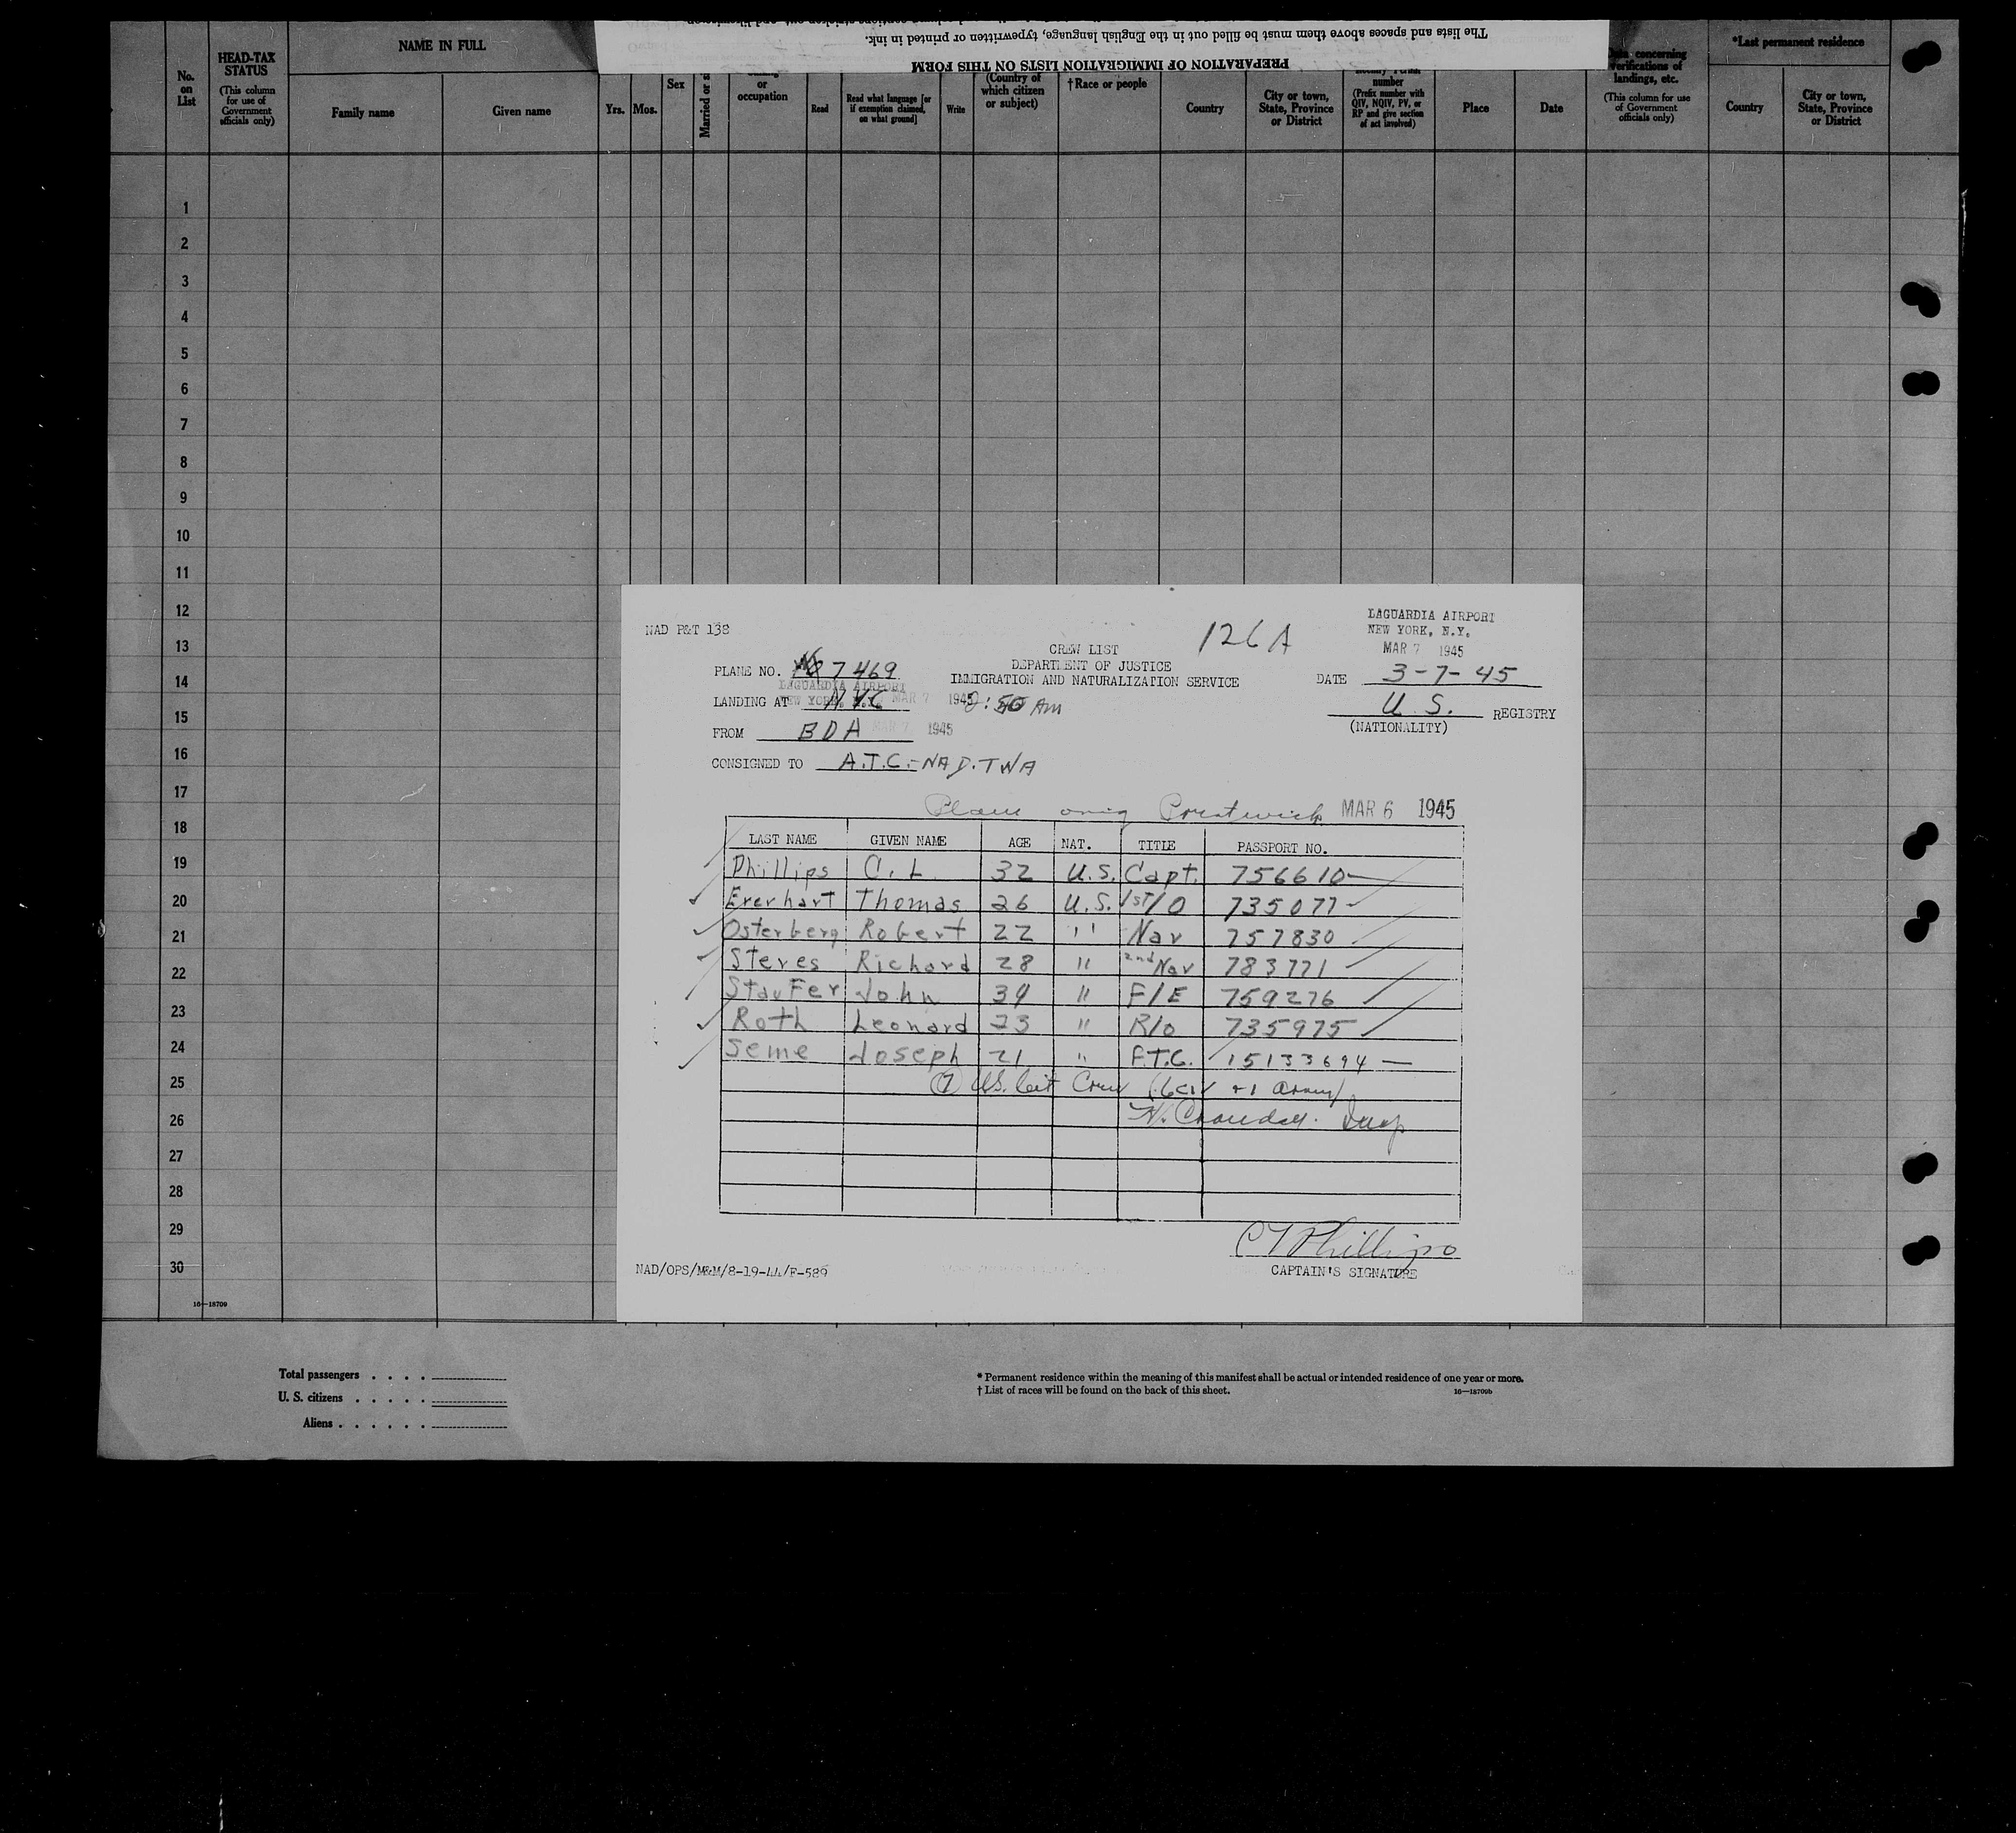 The lists and spaces above them must be filled out in the English language, typewritten or printed in ink.
PREPARATION OF IMMIGRATION LISTS ON THIS FORM
No. on List
HEAD-TAX STATUS
(This column for use of Government officials only)
NAME IN FULL
Family name
Given name
Yrs.
Mos.
Sex
Married or
or occupation
Read
Read what language [or if exemption claimed, on what ground]
Write
(Country of which citizen or subject)
†Race or people
Country
City or town, State, Province or District
number
(Prefix number with QIV, NQIV, PV, or RP and give section of act involved)
Place
Date
concerning verifications of landings, etc.
(This column for use of Government officials only)
*Last permanent residence
Country
City or town, State, Province or District
1
2
3
4
5
6
7
8
9
10
11
12
13
14
15
16
17
18
19
20
21
22
23
24
25
26
27
28
29
30
16—18709
NAD P&T 138
126 A
LAGUARDIA AIRPORT
NEW YORK, N.Y.
MAR 7 1945
CREW LIST
DEPARTMENT OF JUSTICE
IMMIGRATION AND NATURALIZATION SERVICE
PLANE NO. 7469
DATE 3-7-45
LAGUARDIA AIRPORT
LANDING AT N.Y.C. MAR 7 1945 :50 AM
U.S. REGISTRY
(NATIONALITY)
FROM BDA MAR 7 1945
CONSIGNED TO A.T.C.-NAD.TWA
Plane orig Prestwick MAR 6 1945
LAST NAME GIVEN NAME AGE NAT. TITLE PASSPORT NO.
Phillips C. L. 32 U.S. Capt. 756610
Everhart Thomas 26 U.S. 1st/O 735077
Osterberg Robert 22 " Nav 757830
Steves Richard 28 " 2nd Nav 783771
Staufer John 34 " F/E 759276
Roth Leonard 23 " R/O 735975
Seme Joseph 21 " F.T.C. 15133694
7 US. Cit Crew (6 civ + 1 Army)
Insp
C L Phillips
CAPTAIN'S SIGNATURE
NAD/OPS/M&M/8-19-44/F-589
Total passengers . . . .
U. S. citizens . . . . .
Aliens . . . . . .
* Permanent residence within the meaning of this manifest shall be actual or intended residence of one year or more.
† List of races will be found on the back of this sheet.
16—18709b